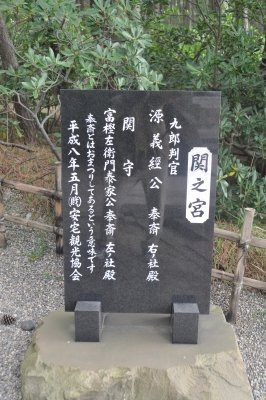 関之宮
九郎判官
源義經公 奉斎 右ノ社殿
関守
富樫左衛門泰家公奉斎 左ノ社殿
奉斎とはおまつりしてあるという意味です
平成八年五月 安宅観光協会